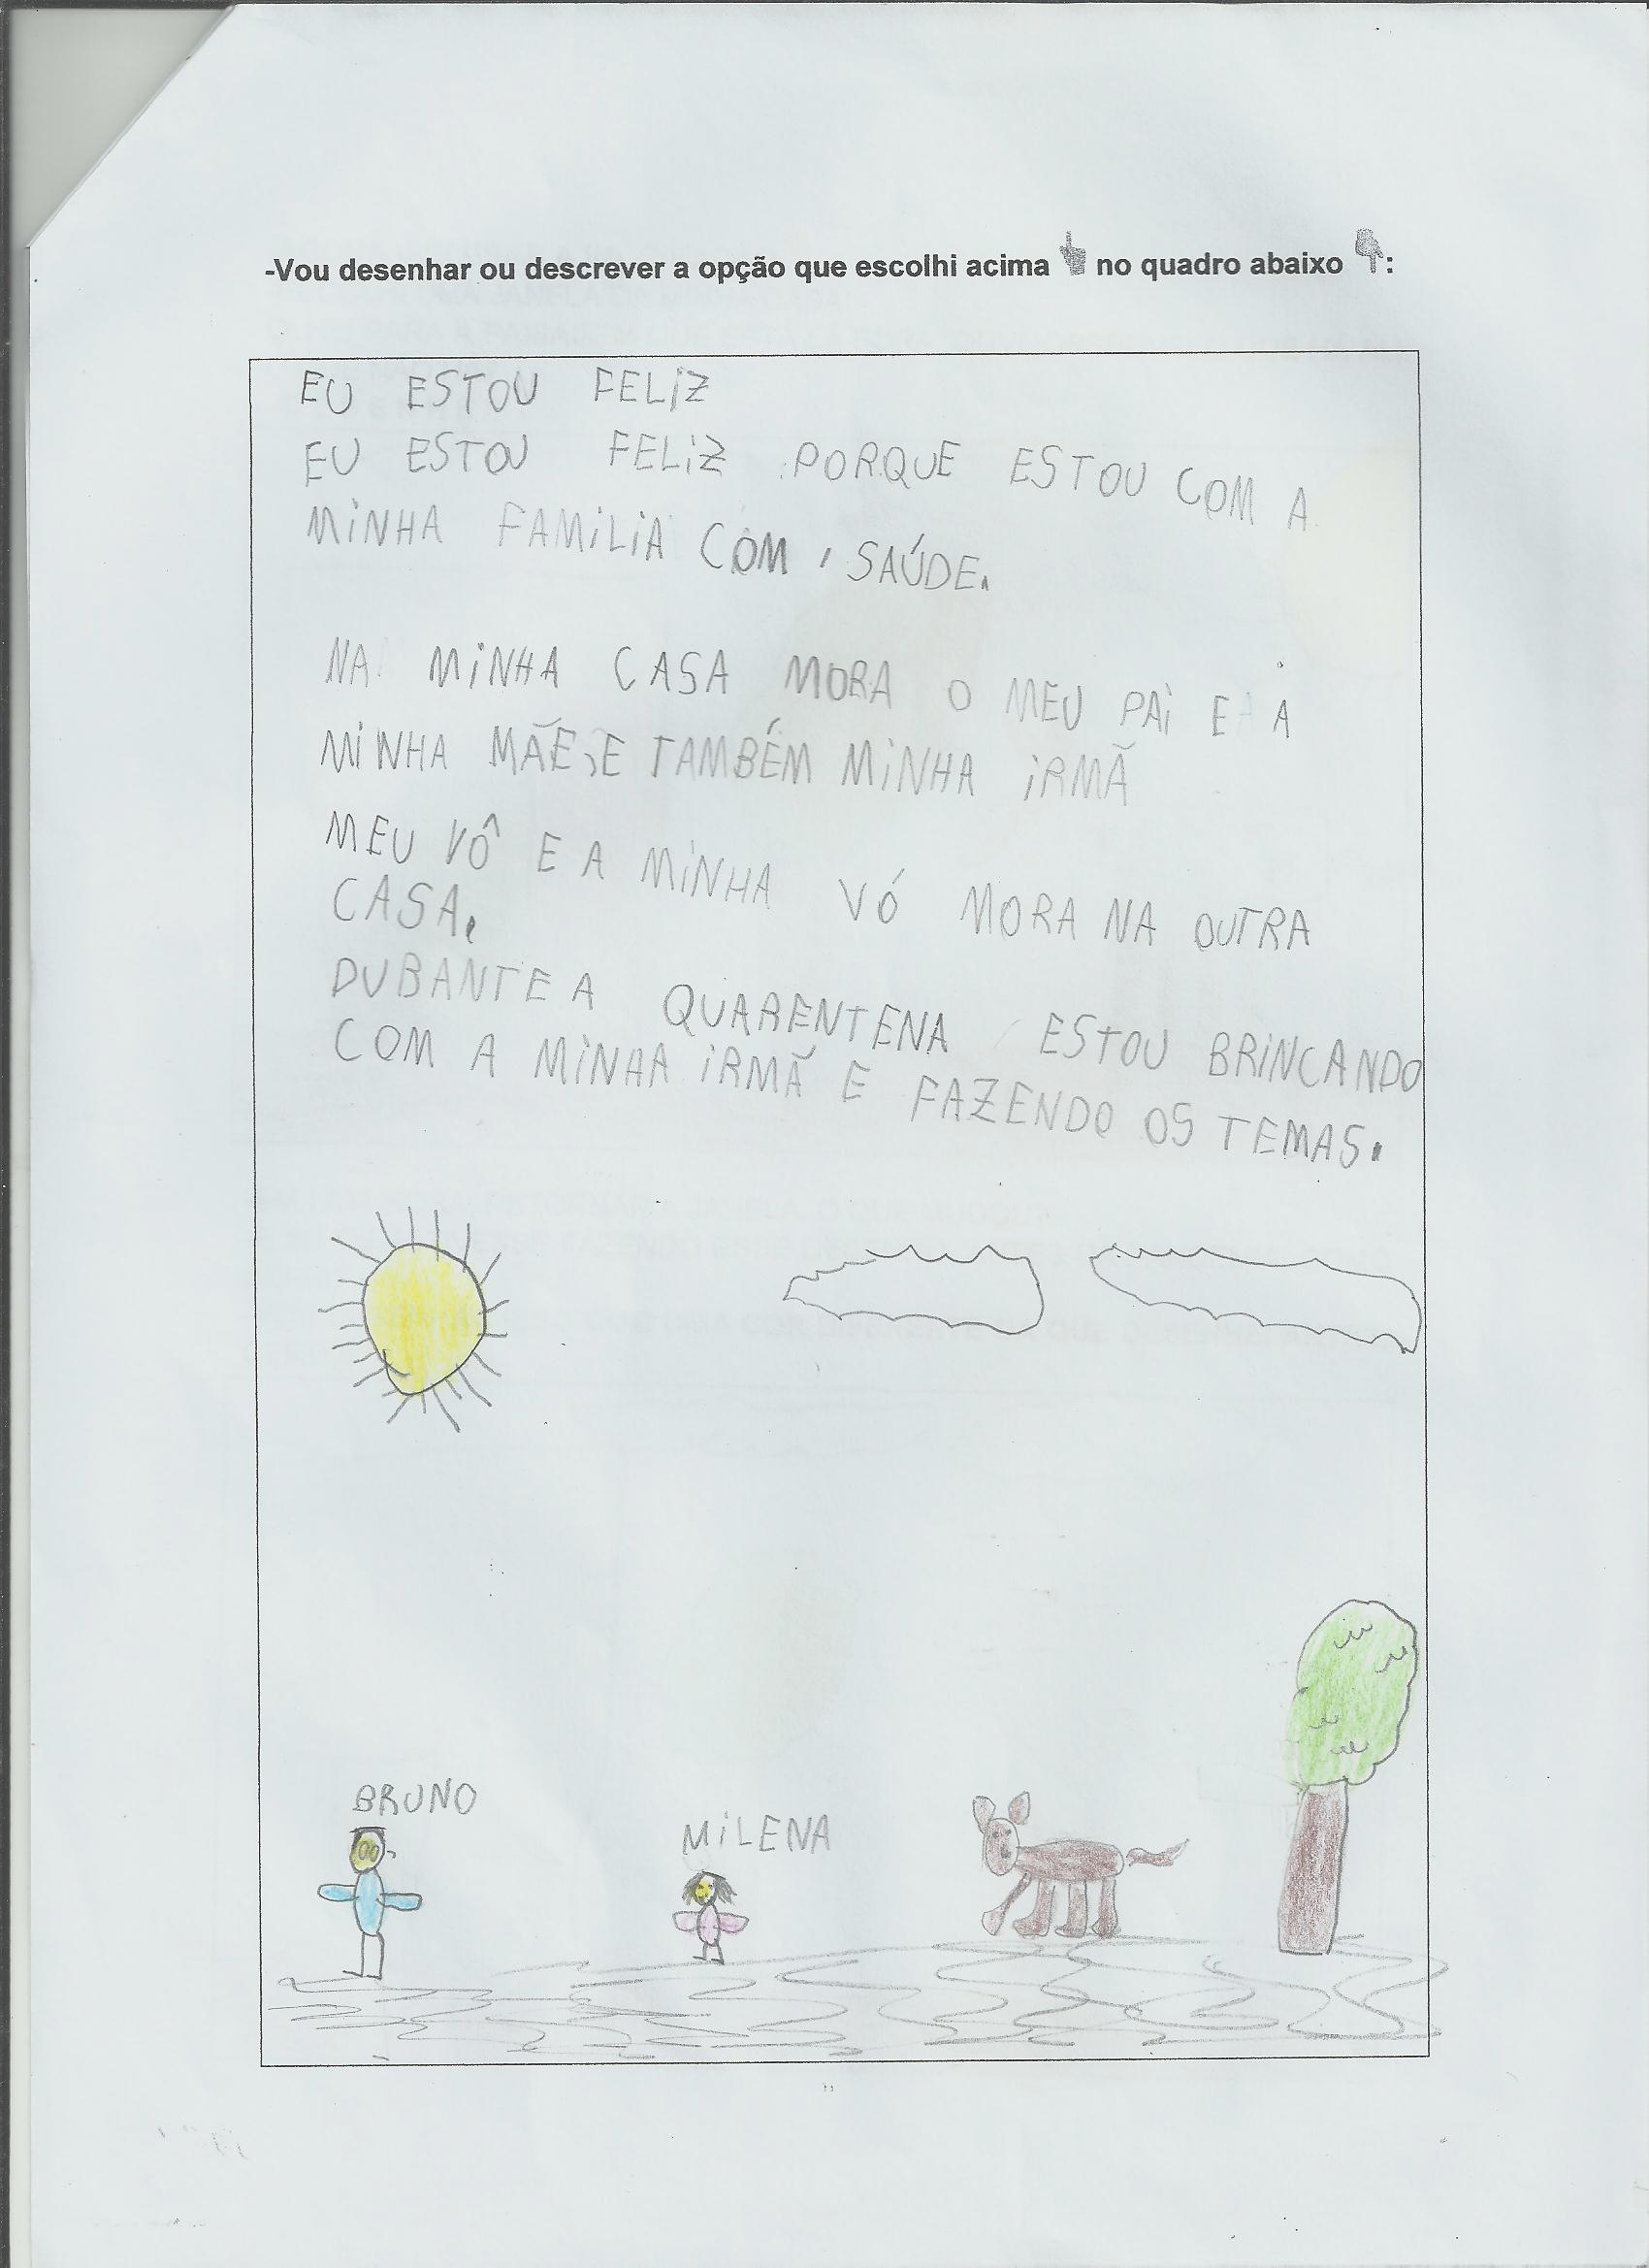 -Vou desenhar ou descrever a opção que escolhi acima 👆 no quadro abaixo 👇:
EU ESTOU FELIZ
EU ESTOU FELIZ PORQUE ESTOU COM A
MINHA FAMILIA COM SAÚDE.
NA MINHA CASA MORA O MEU PAI E A
MINHA MÃE, E TAMBÉM MINHA IRMÃ
MEU VÔ E A MINHA VÓ MORA NA OUTRA
CASA.
DURANTE A QUARENTENA ESTOU BRINCANDO
COM A MINHA IRMÃ E FAZENDO OS TEMAS.
BRUNO
MILENA